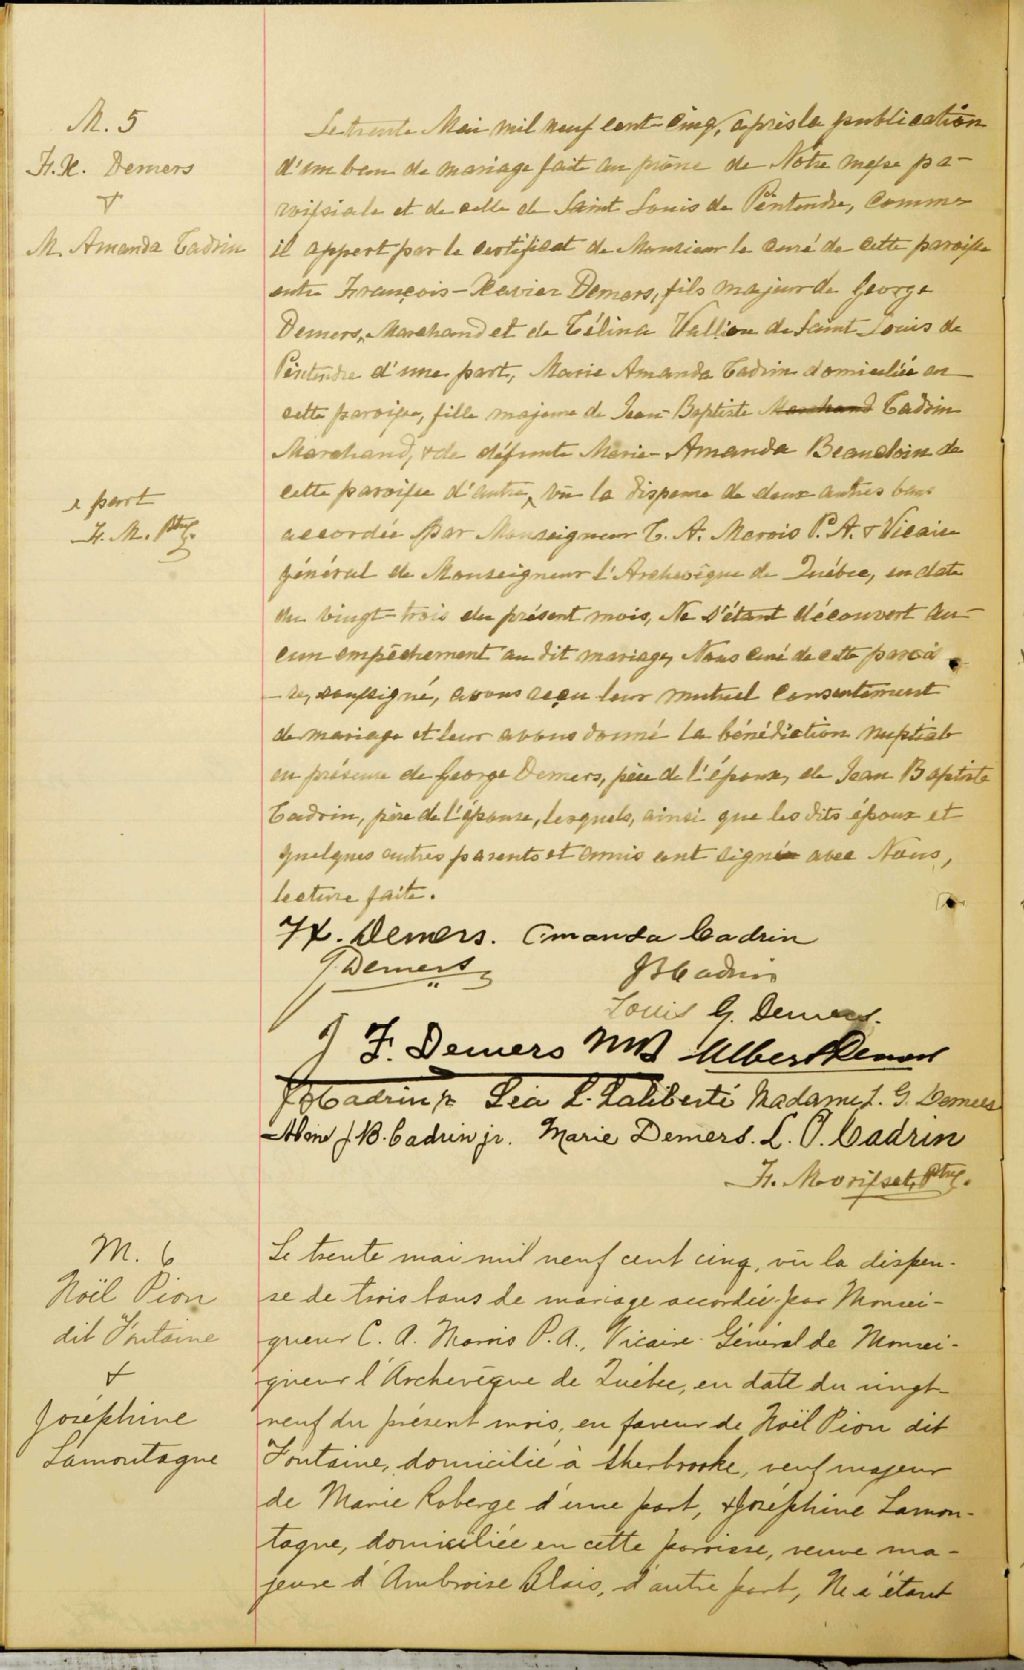 M. 5
F. X. Demers
+
M. Amanda Cadrin
Le trente Mai mil neuf cent-cinq, après la publication
d'un ban de mariage faite au prône de Notre messe pa-
roissiale et de celle de Saint Louis de Pintendre, comme
il appert par le certificat de Monsieur le curé de cette paroisse
entre François-Xavier Demers, fils majeur de George
Demers, Marchand et de Célina Vallière de Saint-Louis de
Pintendre d'une part, Marie Amanda Cadrin domiciliée en
cette paroisse, fille majeure de Jean-Baptiste Marchand Cadrin
Marchand, & de défunte Marie-Amanda Beaudoin de
cette paroisse d'autre, vu la dispense de deux autres bans
e part
F. M. Ptre
accordée par Monseigneur C. A. Marois P. A. & Vicaire
général de Monseigneur l'Archevêque de Québec, en date
du vingt-trois du présent mois, Ne s'étant découvert au-
cun empêchement au dit mariage, Nous curé de cette parois
-se, soussigné, avons reçu leur mutuel consentement
de mariage et leur avons donné la bénédiction nuptiale
en présence de George Demers, père de l'époux, de Jean Baptiste
Cadrin, père de l'épouse, lesquels, ainsi que les dits époux et
quelques autres parents et amis ont signé avec Nous,
lecture faite.
F X. Demers. Amanda Cadrin
G Demers
JB Cadrin
Louis G. Demers.
J F. Demers MD Albert Demers
JB Cadrin jr Léa L. Laliberté Madame L. G. Demers
Mme J. B. Cadrin jr. Marie Demers. L. O. Cadrin
F. Morisset, Ptre.
M. 6
Noël Pion
dit Fontaine
+
Joséphine
Lamontagne
Le trente mai mil neuf cent cinq, vu la dispen-
se de trois bans de mariage accordée par Monsei-
gneur C. A. Marois P. A., Vicaire-Général de Monsei-
gneur l'Archevêque de Québec, en date du vingt-
neuf du présent mois, en faveur de Noël Pion dit
Fontaine, domicilié à Sherbrooke, veuf majeur
de Marie Roberge d'une part, & Joséphine Lamon-
tagne, domiciliée en cette paroisse, veuve ma-
jeure d'Ambroise Blais, d'autre part, Ne s'étant